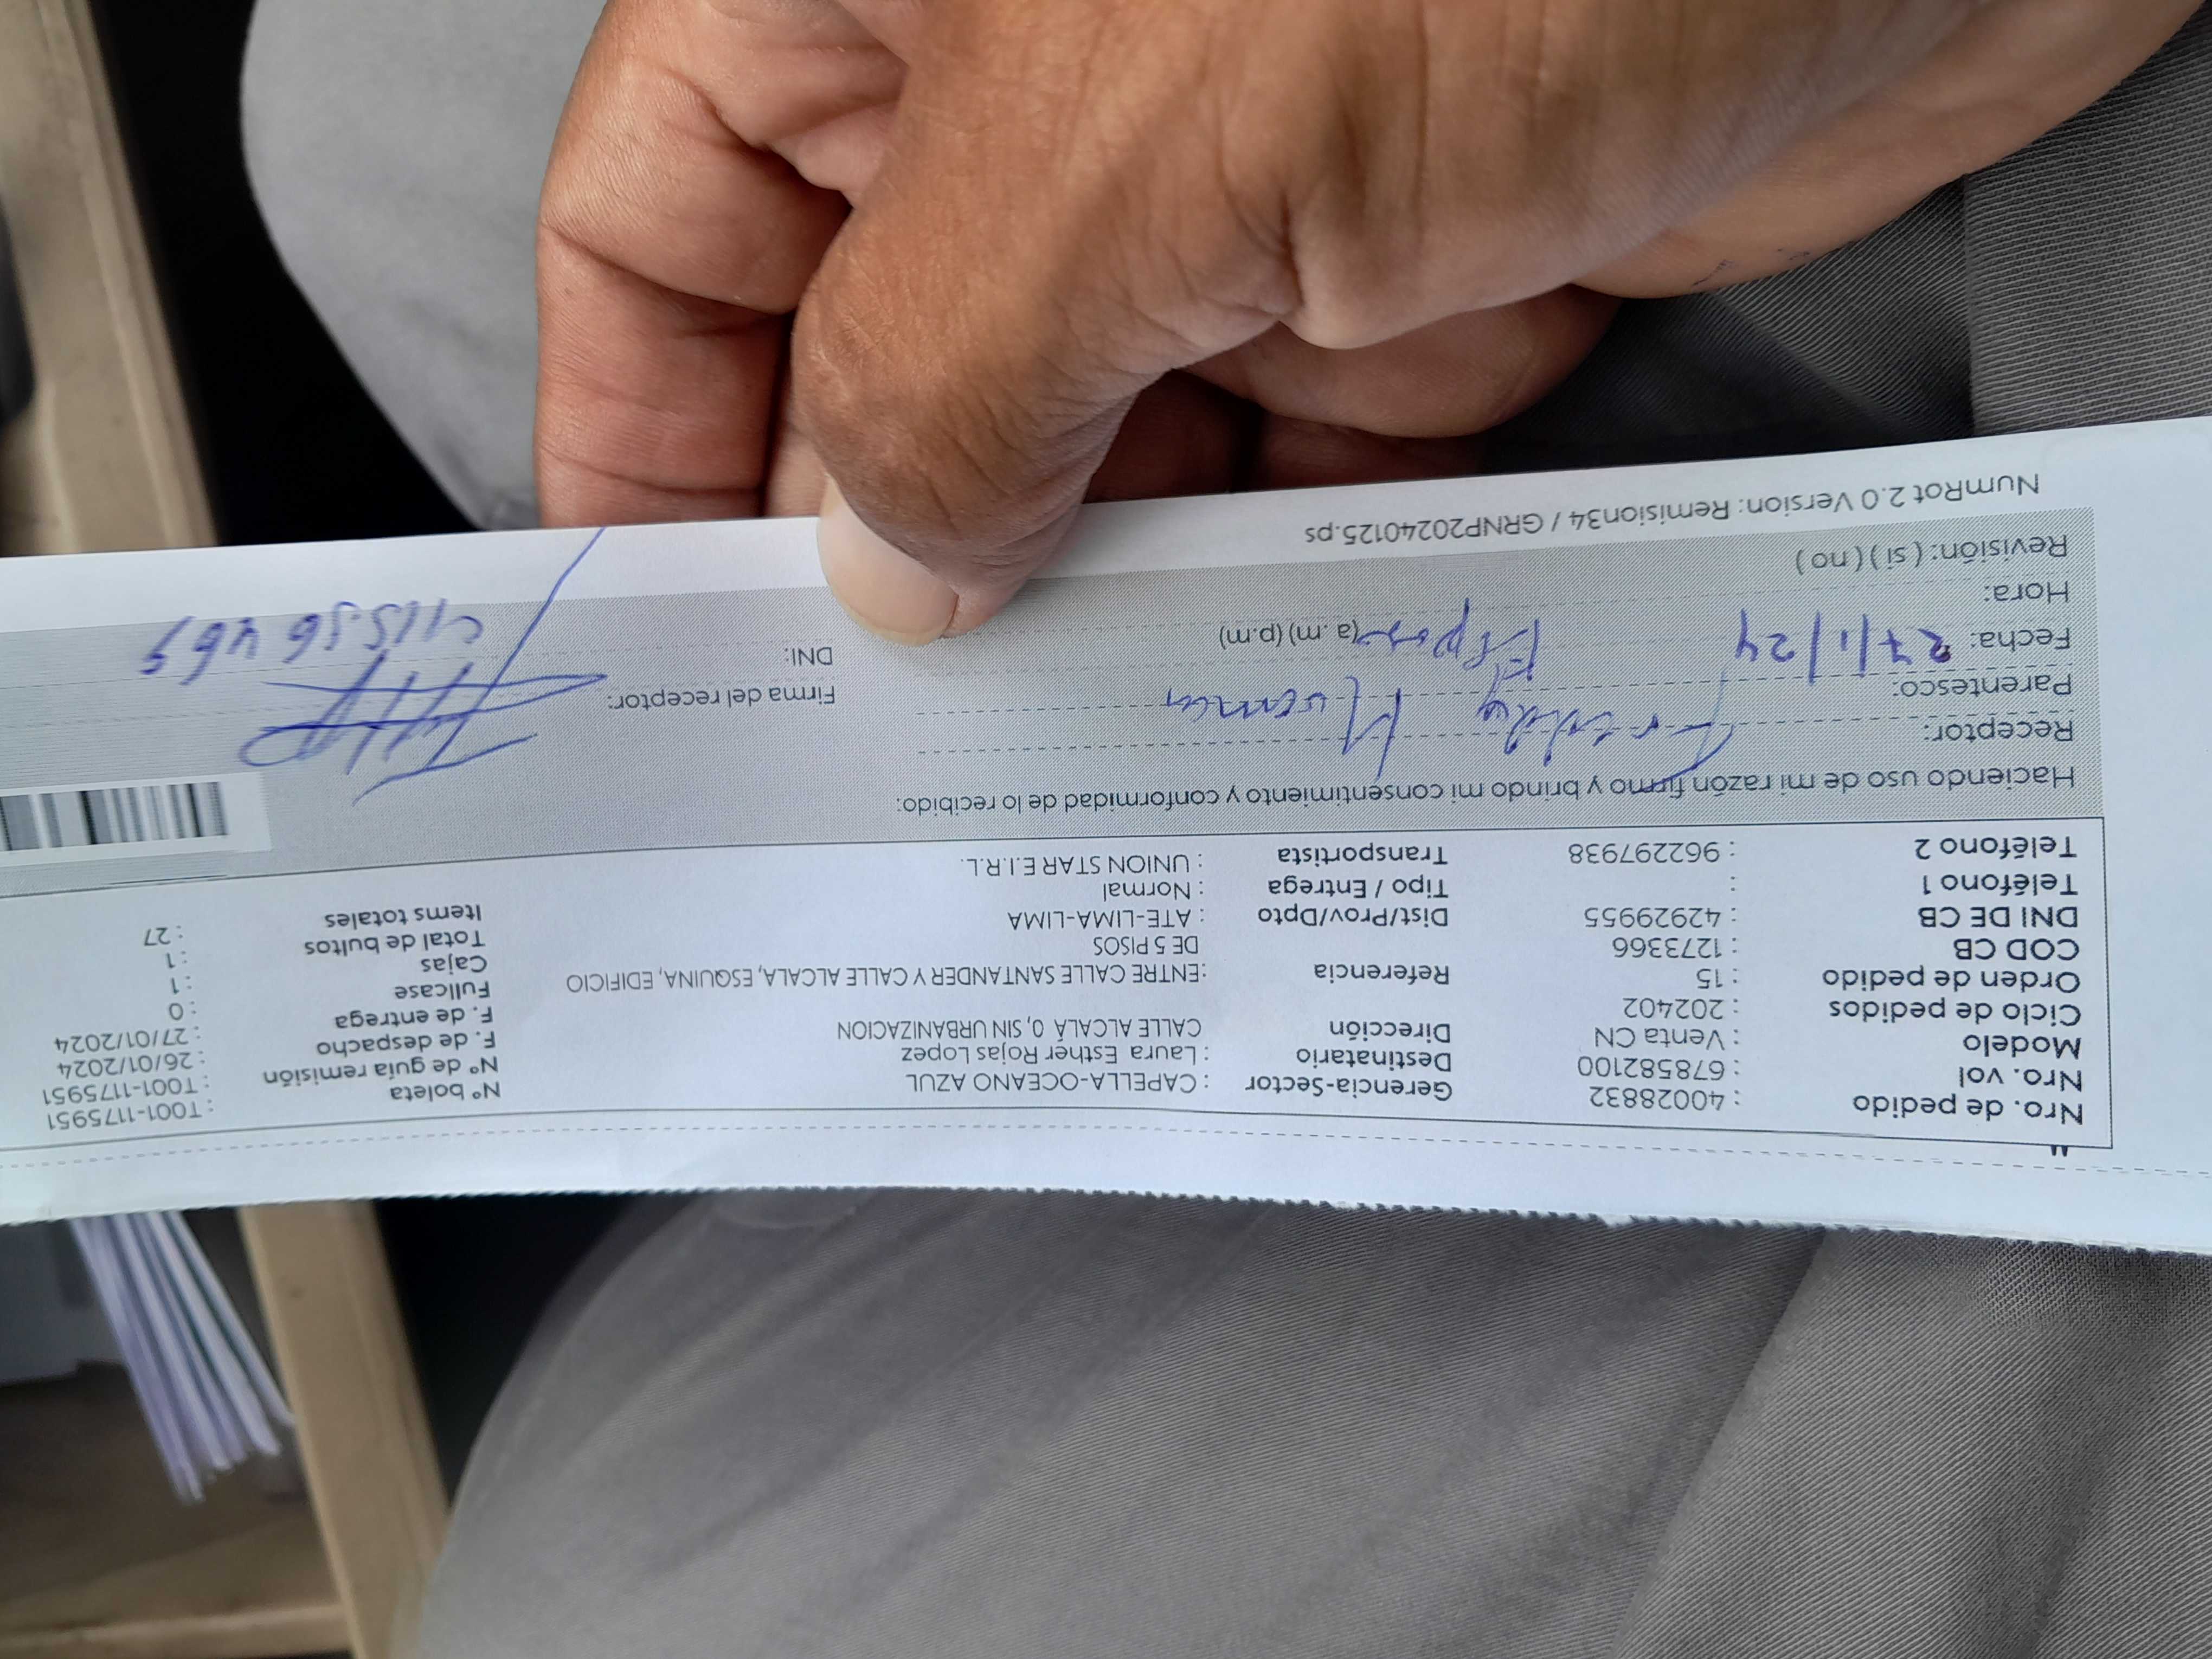 Nro. de pedido : 40028832 Gerencia-Sector : CAPELLA-OCEANO AZUL Nº boleta : T001-1175951
Nro. vol : 678582100 Destinatario : Laura Esther Rojas Lopez Nº de guía remisión : T001-1175951
Modelo : Venta CN Dirección CALLE ALCALÁ 0, SIN URBANIZACION F. de despacho : 26/01/2024
Ciclo de pedidos : 202402 F. de entrega : 27/01/2024
Orden de pedido : 15 Referencia :ENTRE CALLE SANTANDER Y CALLE ALCALA, ESQUINA, EDIFICIO Fullcase : 0
COD CB : 1273366 DE 5 PISOS Cajas : 1
DNI DE CB : 42929955 Dist/Prov/Dpto : ATE-LIMA-LIMA Total de bultos : 1
Teléfono 1 : Tipo / Entrega : Normal Items totales : 27
Teléfono 2 : 962297938 Transportista : UNION STAR E.I.R.L.
Haciendo uso de mi razón firmo y brindo mi consentimiento y conformidad de lo recibido:
Receptor: Freddy Huaman
Parentesco: Esposo Firma del receptor:
Fecha: 27/1/24 DNI: 41556469
Hora: (a.m) (p.m)
Revisión: ( si ) ( no )
NumRot 2.0 Version: Remision34 / GRNP20240125.ps